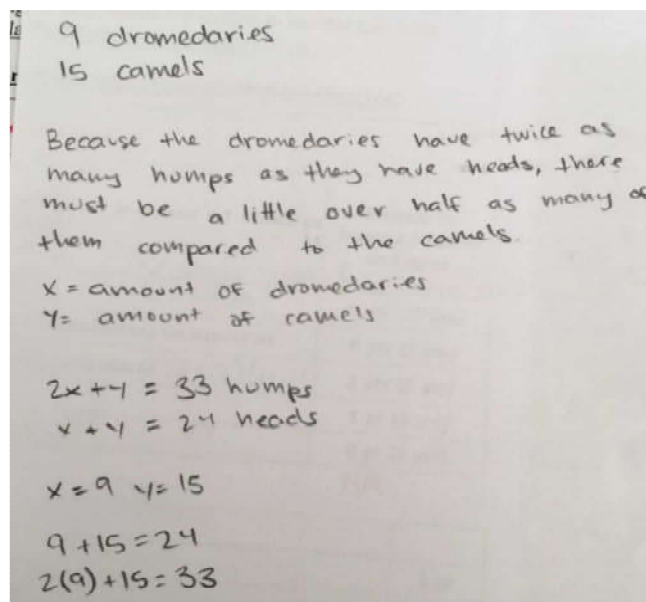 9 dromedaries
15 camels
Because the dromedaries have twice as
many humps as they have heads, there
must be a little over half as many of
them compared to the camels.
X = amount of dromedaries
Y = amount of camels
2x + y = 33 humps
x + y = 24 heads
x = 9 y = 15
9 + 15 = 24
2(9) + 15 = 33